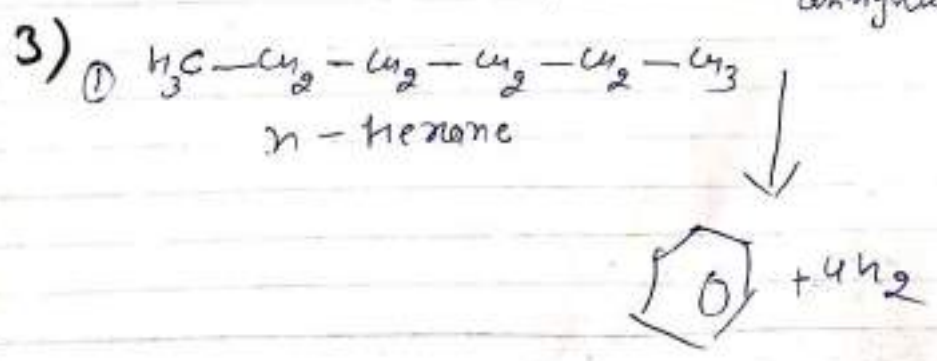 3) ① H3C—CH2—CH2—CH2—CH2—CH3
n-hexane
+4H2